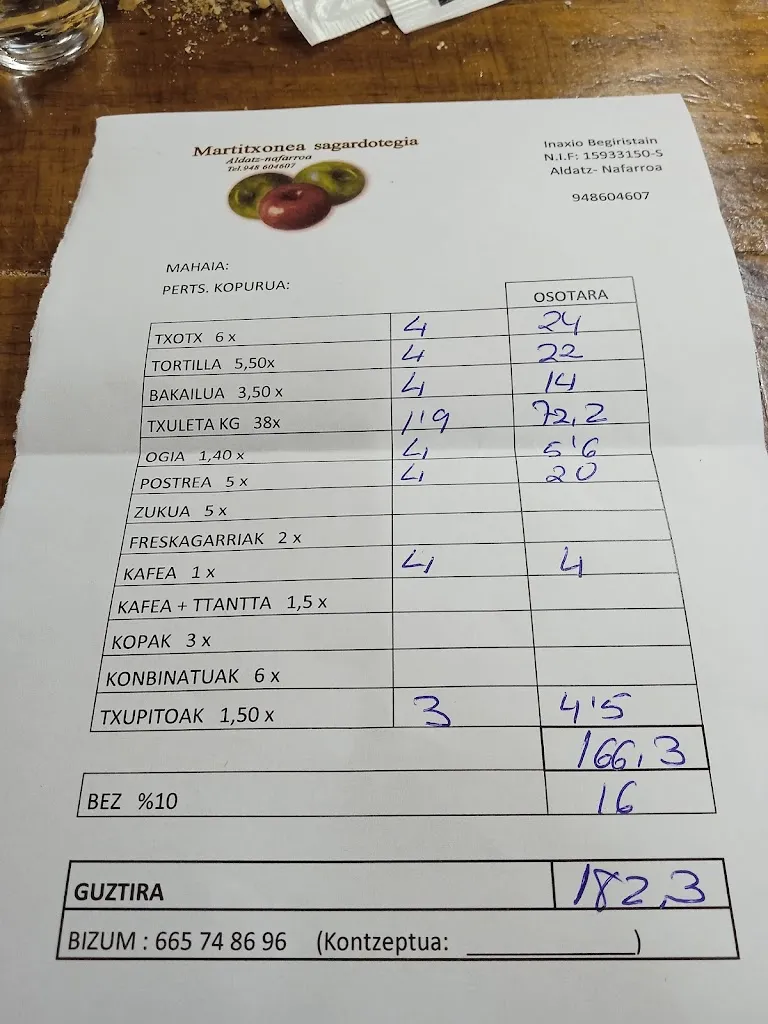 Martitxonea sagardotegia
Aldatz-nafarroa
Tel.948 604607
Inaxio Begiristain
N.I.F: 15933150-S
Aldatz- Nafarroa
948604607
MAHAIA:
PERTS. KOPURUA:
OSOTARA
TXOTX 6 x 4 24
TORTILLA 5,50x 4 22
BAKAILUA 3,50 x 4 14
TXULETA KG 38x 1'9 72,2
OGIA 1,40 x 4 5'6
POSTREA 5 x 4 20
ZUKUA 5 x
FRESKAGARRIAK 2 x
KAFEA 1 x 4 4
KAFEA + TTANTTA 1,5 x
KOPAK 3 x
KONBINATUAK 6 x
TXUPITOAK 1,50 x 3 4'5
166,3
BEZ %10 16
GUZTIRA 182,3
BIZUM : 665 74 86 96 (Kontzeptua: ____________)